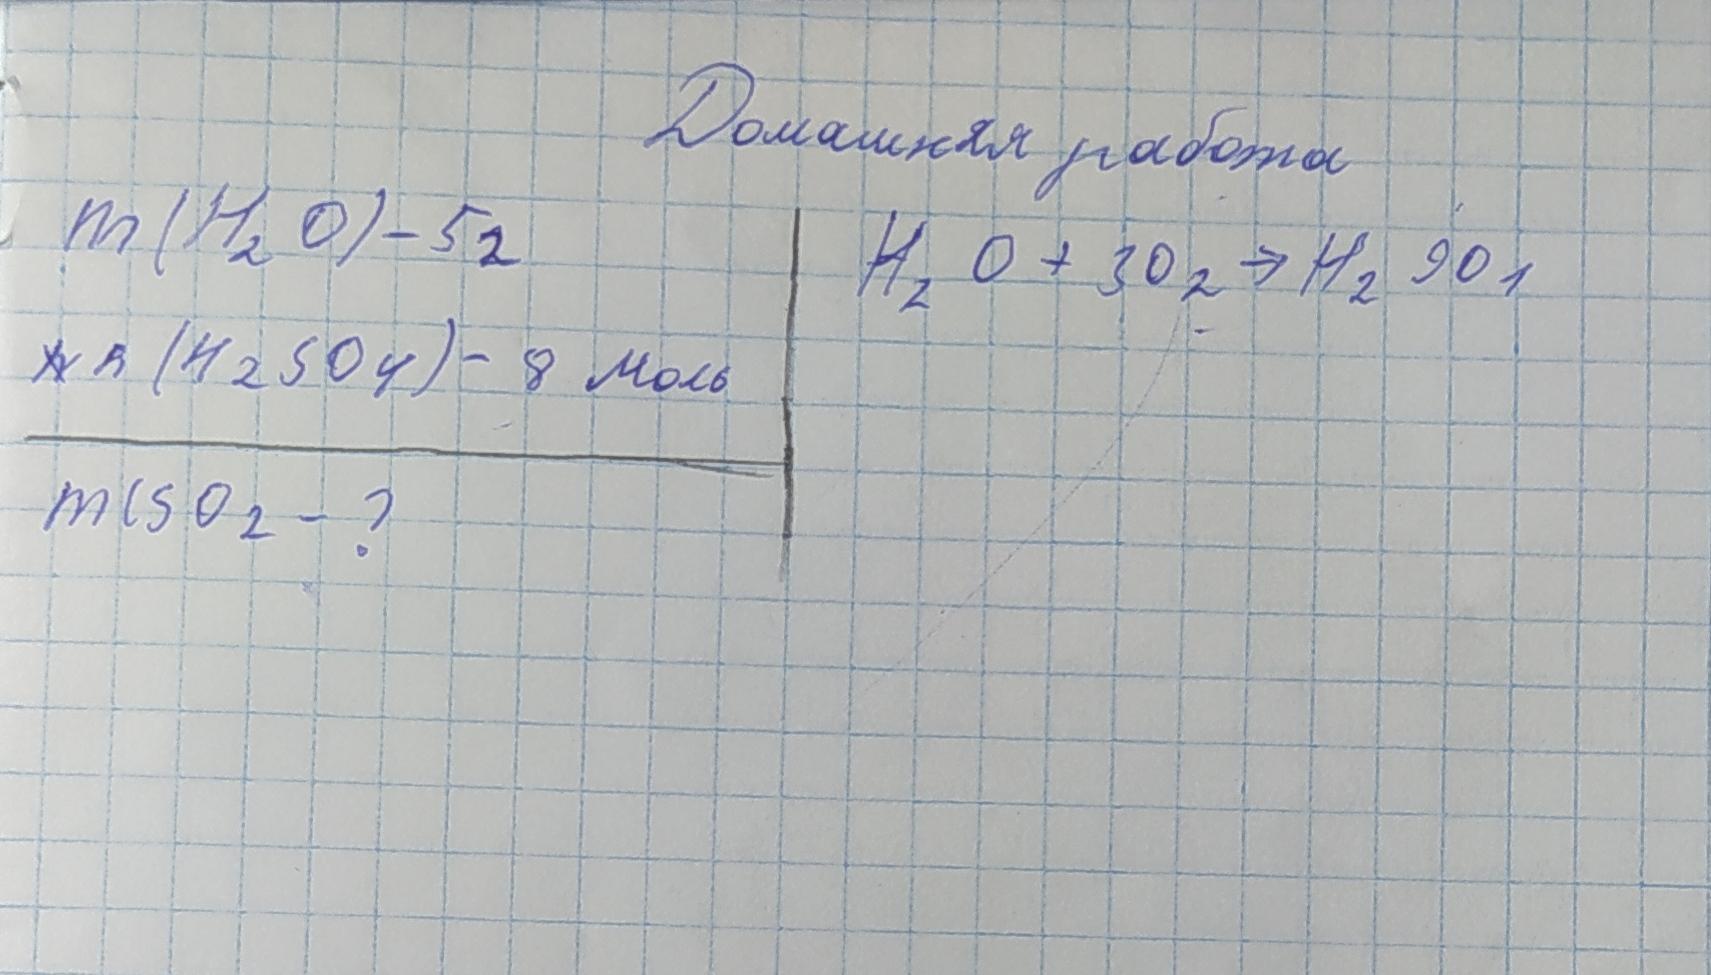 Домашняя работа
m(H₂O) - 5г
n(H₂SO₄) - 8 моль
m(SO₂ - ?
H₂O + 3O₂ → H₂ 9O₁